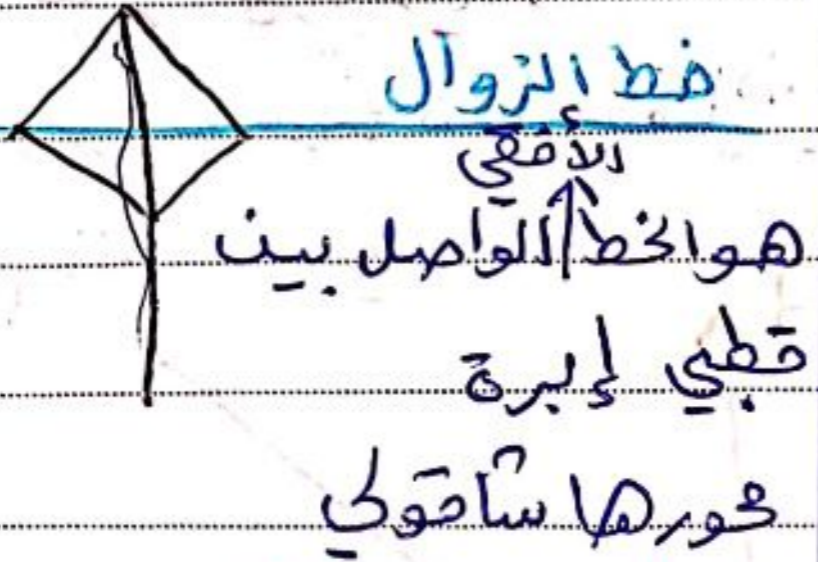 خط الزوال
هو الخط الأفقي الواصل بين
قطبي إبرة
محورها شاقولي